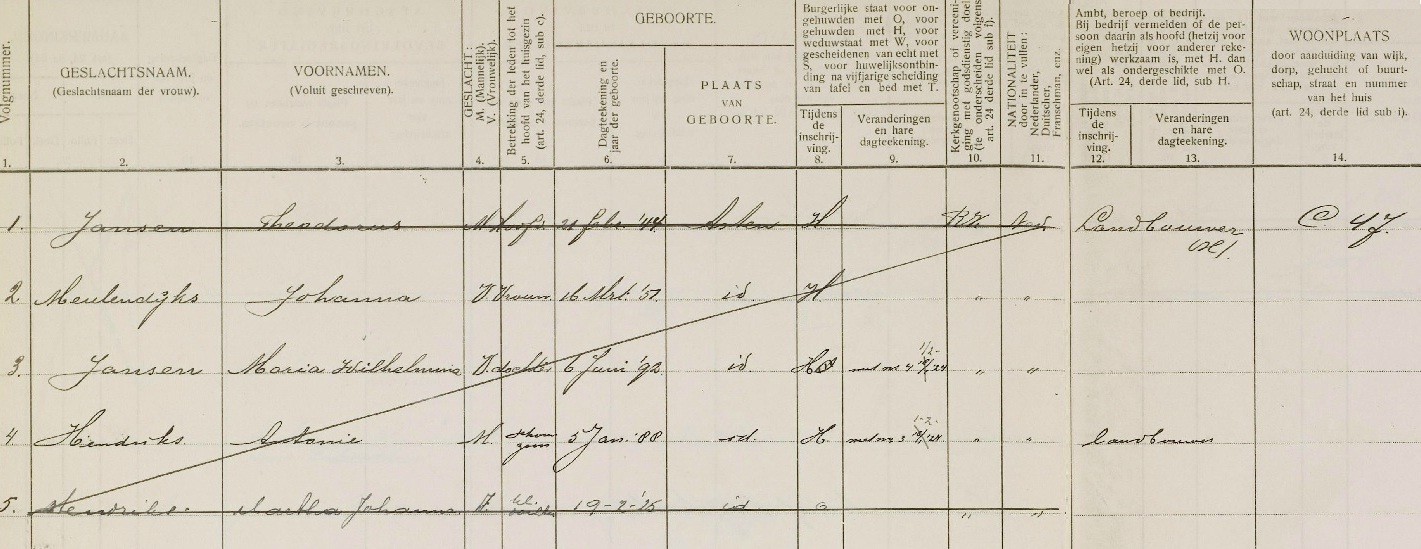 Volgnummer.
GESLACHTSNAAM.
(Geslachtsnaam der vrouw).
VOORNAMEN.
(Voluit geschreven).
GESLACHT:
M. (Mannelijk).
V. (Vrouwelijk).
Betrekking der leden tot het
hoofd van het huisgezin
(art. 24, derde lid, sub c).
GEBOORTE.
Dagteekening en
jaar der geboorte.
PLAATS
VAN
GEBOORTE.
Burgerlijke staat voor on-
gehuwden met O, voor
gehuwden met H, voor
weduwstaat met W, voor
gescheidenen van echt met
S, voor huwelijksontbin-
ding na vijfjarige scheiding
van tafel en bed met T.
Tijdens
de
inschrij-
ving.
Veranderingen
en hare
dagteekening.
Kerkgenootschap of vereeni-
ging met godsdienstig doel
(te onderscheiden volgens
art. 24 derde lid sub f).
NATIONALITEIT
door in te vullen:
Nederlander,
Duitscher,
Franschman, enz.
Ambt, beroep of bedrijf.
Bij bedrijf vermelden of de per-
soon daarin als hoofd (hetzij voor
eigen hetzij voor anderer reke-
ning) werkzaam is, met H. dan
wel als ondergeschikte met O.
(Art. 24, derde lid, sub H.
Tijdens
de
inschrij-
ving.
Veranderingen
en hare
dagteekening.
WOONPLAATS
door aanduiding van wijk,
dorp, gehucht of buurt-
schap, straat en nummer
van het huis
(art. 24, derde lid sub i).
1. 2. 3. 4. 5. 6. 7. 8. 9. 10. 11. 12. 13. 14.
1. Jansen Theodorus M Hoofd. 21 Febr. '44 Asten H RK Ned. Landbouwer C 47.
2 Meulendijks Johanna V. Vrouw. 16 Mrt. '51 id. H " "
3. Jansen Maria Wilhelmina V. dochter 6 Juni '92 id. H met no. 4 1/2- '24 " "
4. Hendriks. Antonie M. schoon
zoon 5 Jan. '88 id. H. met no 3 1-2- '24 " " landbouwer
5. Hendriks. Martha Johanna V. 19-2-'25 id O " "